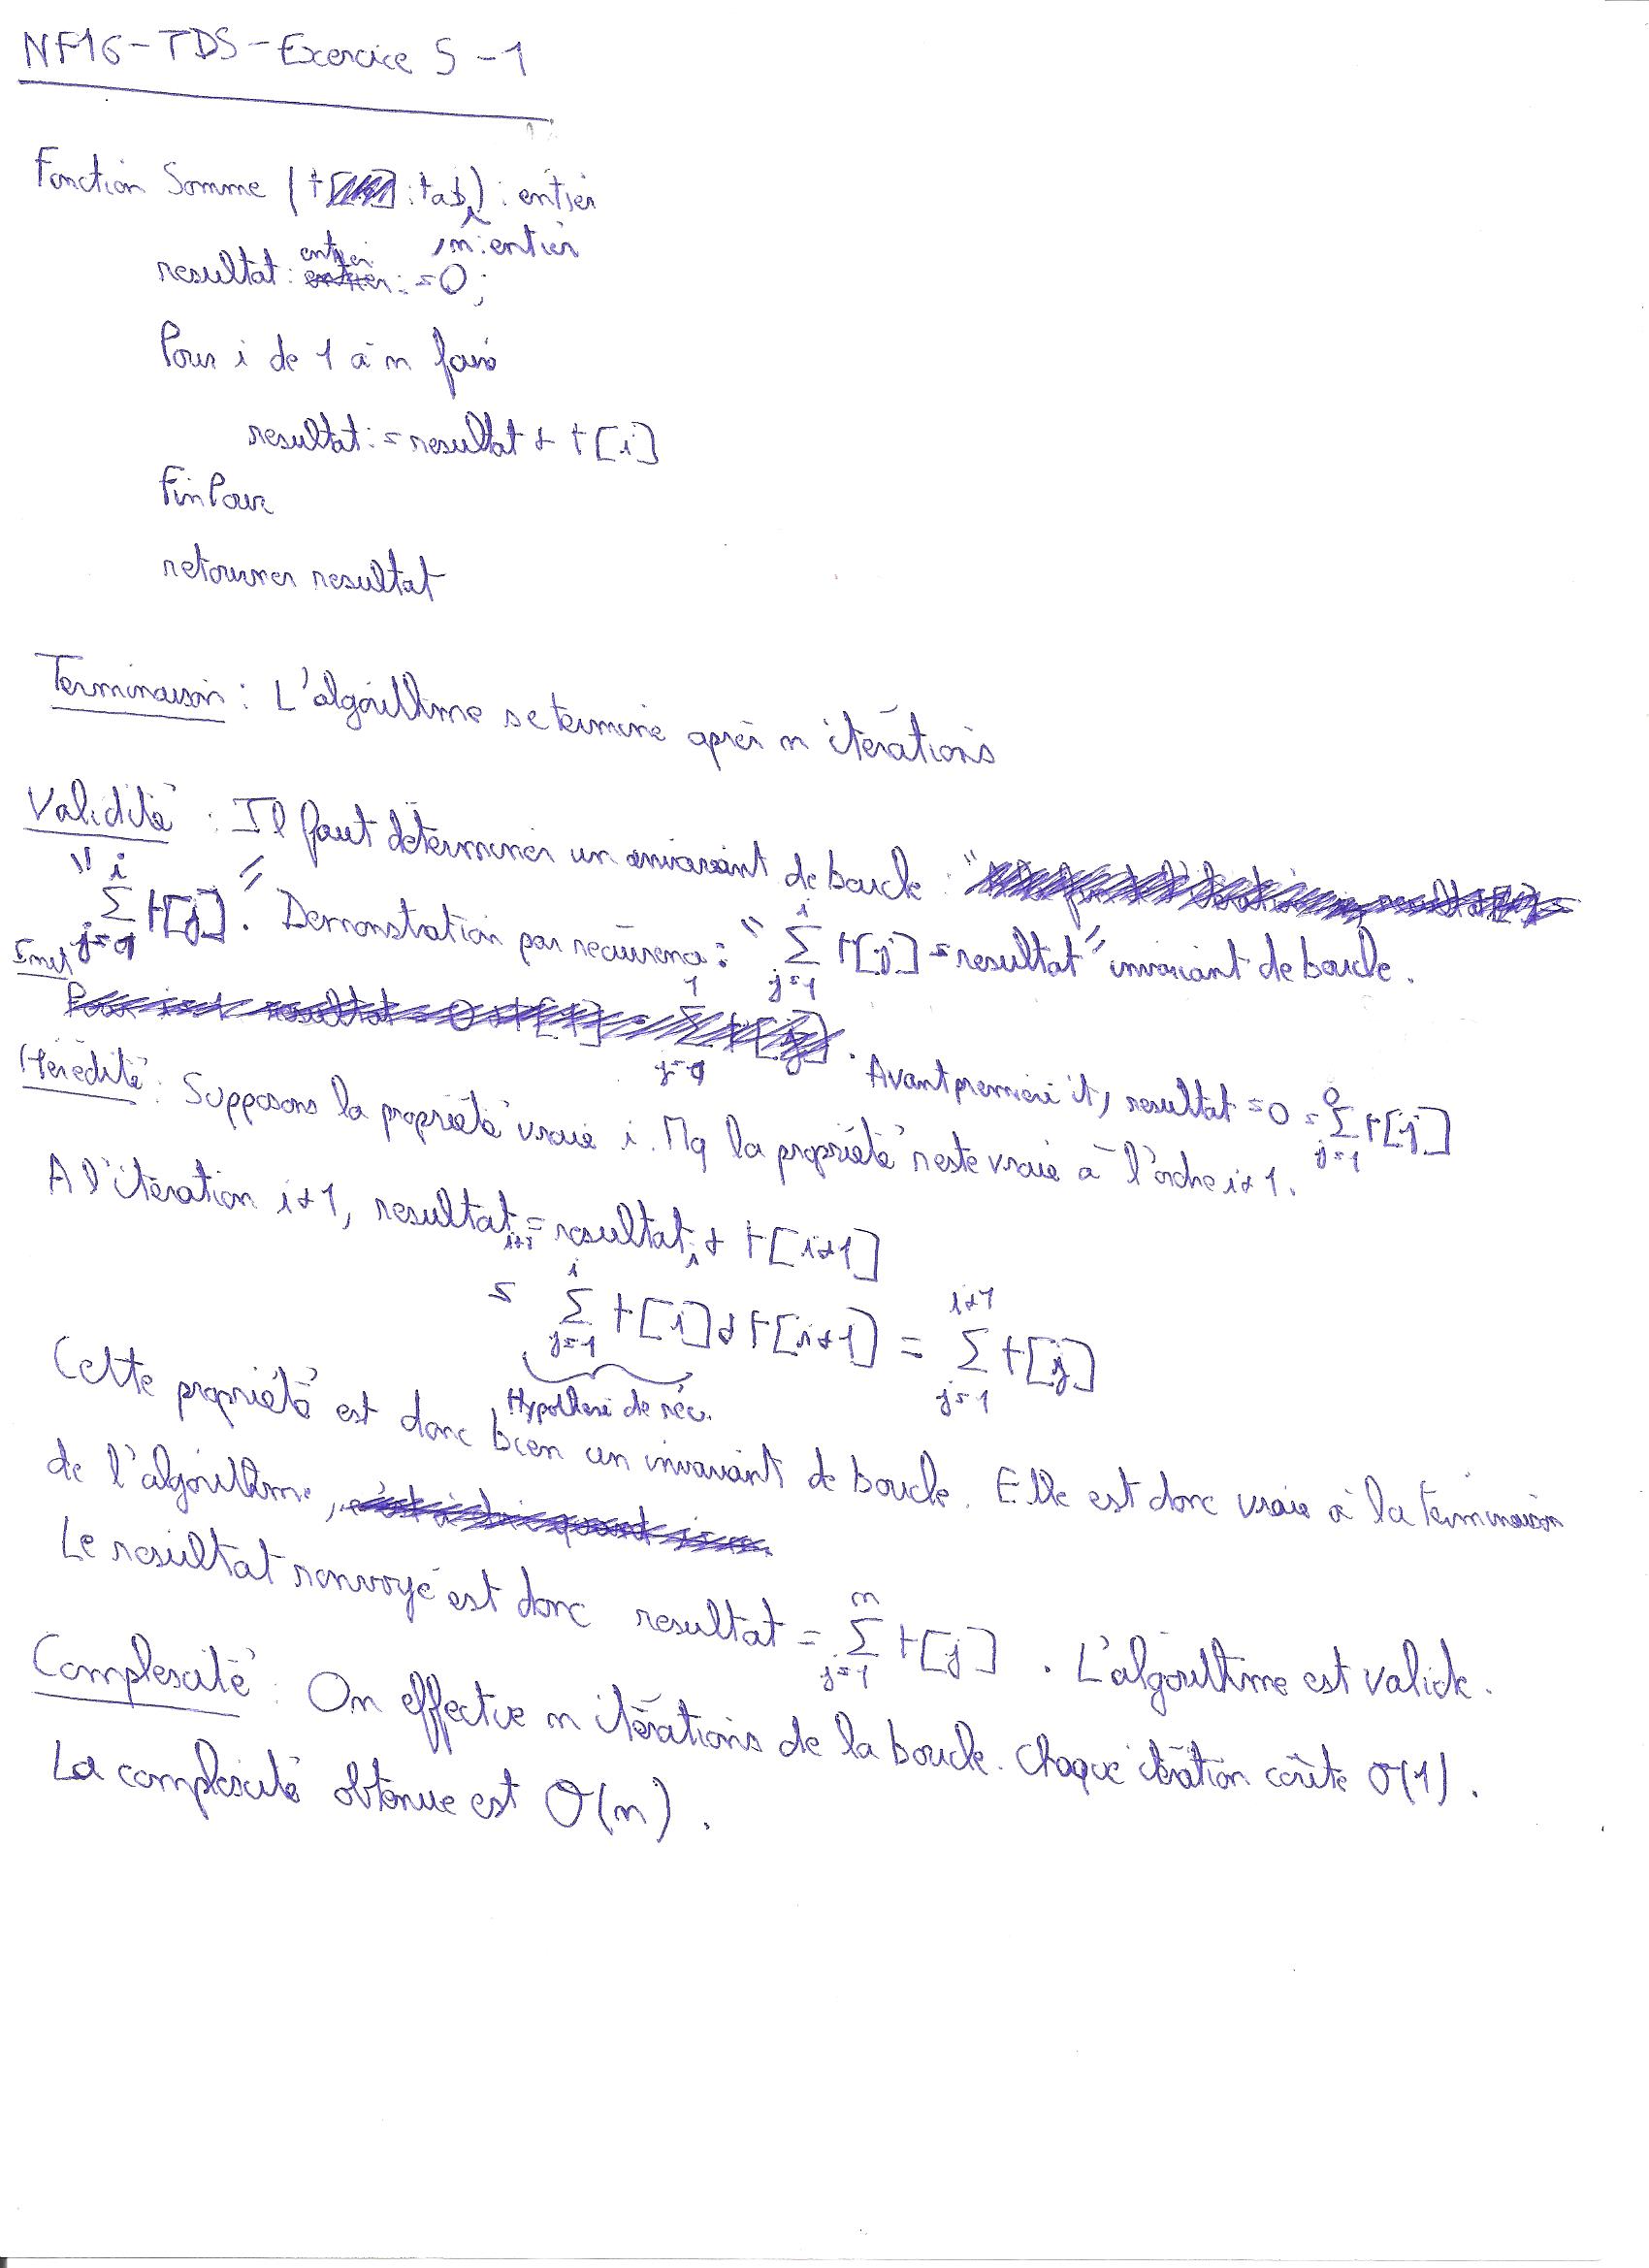 NF16 - TD5 - Exercice 5 - 1
Fonction Somme (t : tab, n : entier) : entier
resultat : entier := 0 ;
Pour i de 1 à n faire
resultat := resultat + t[i]
Fin Pour
retourner resultat
Terminaison : L'algorithme se termine après n itérations
Validité : Il faut déterminer un invariant de boucle :
" ∑_{j=1}^{i} t[j]. " Demonstration par recurrence : " ∑_{j=1}^{i} t[j] = resultat " invariant de boucle.
Avant première it, resultat = 0 = ∑_{j=1}^{0} t[j]
Hérédité : Supposons la propriété vraie i. Mq la propriété reste vraie à l'ordre i+1.
A l'itération i+1, resultat_{i+1} = resultat_i + t[i+1]
= ∑_{j=1}^{i} t[i] + t[i+1] = ∑_{j=1}^{i+1} t[j]
Hypothèse de réc.
Cette propriété est donc bien un invariant de boucle. Elle est donc vraie à la terminaison
de l'algorithme,
Le resultat renvoyé est donc resultat = ∑_{j=1}^{n} t[j] . L'algorithme est valide.
Complexité : On effectue n itérations de la boucle. Chaque itération coûte O(1).
La complexité obtenue est O(n).